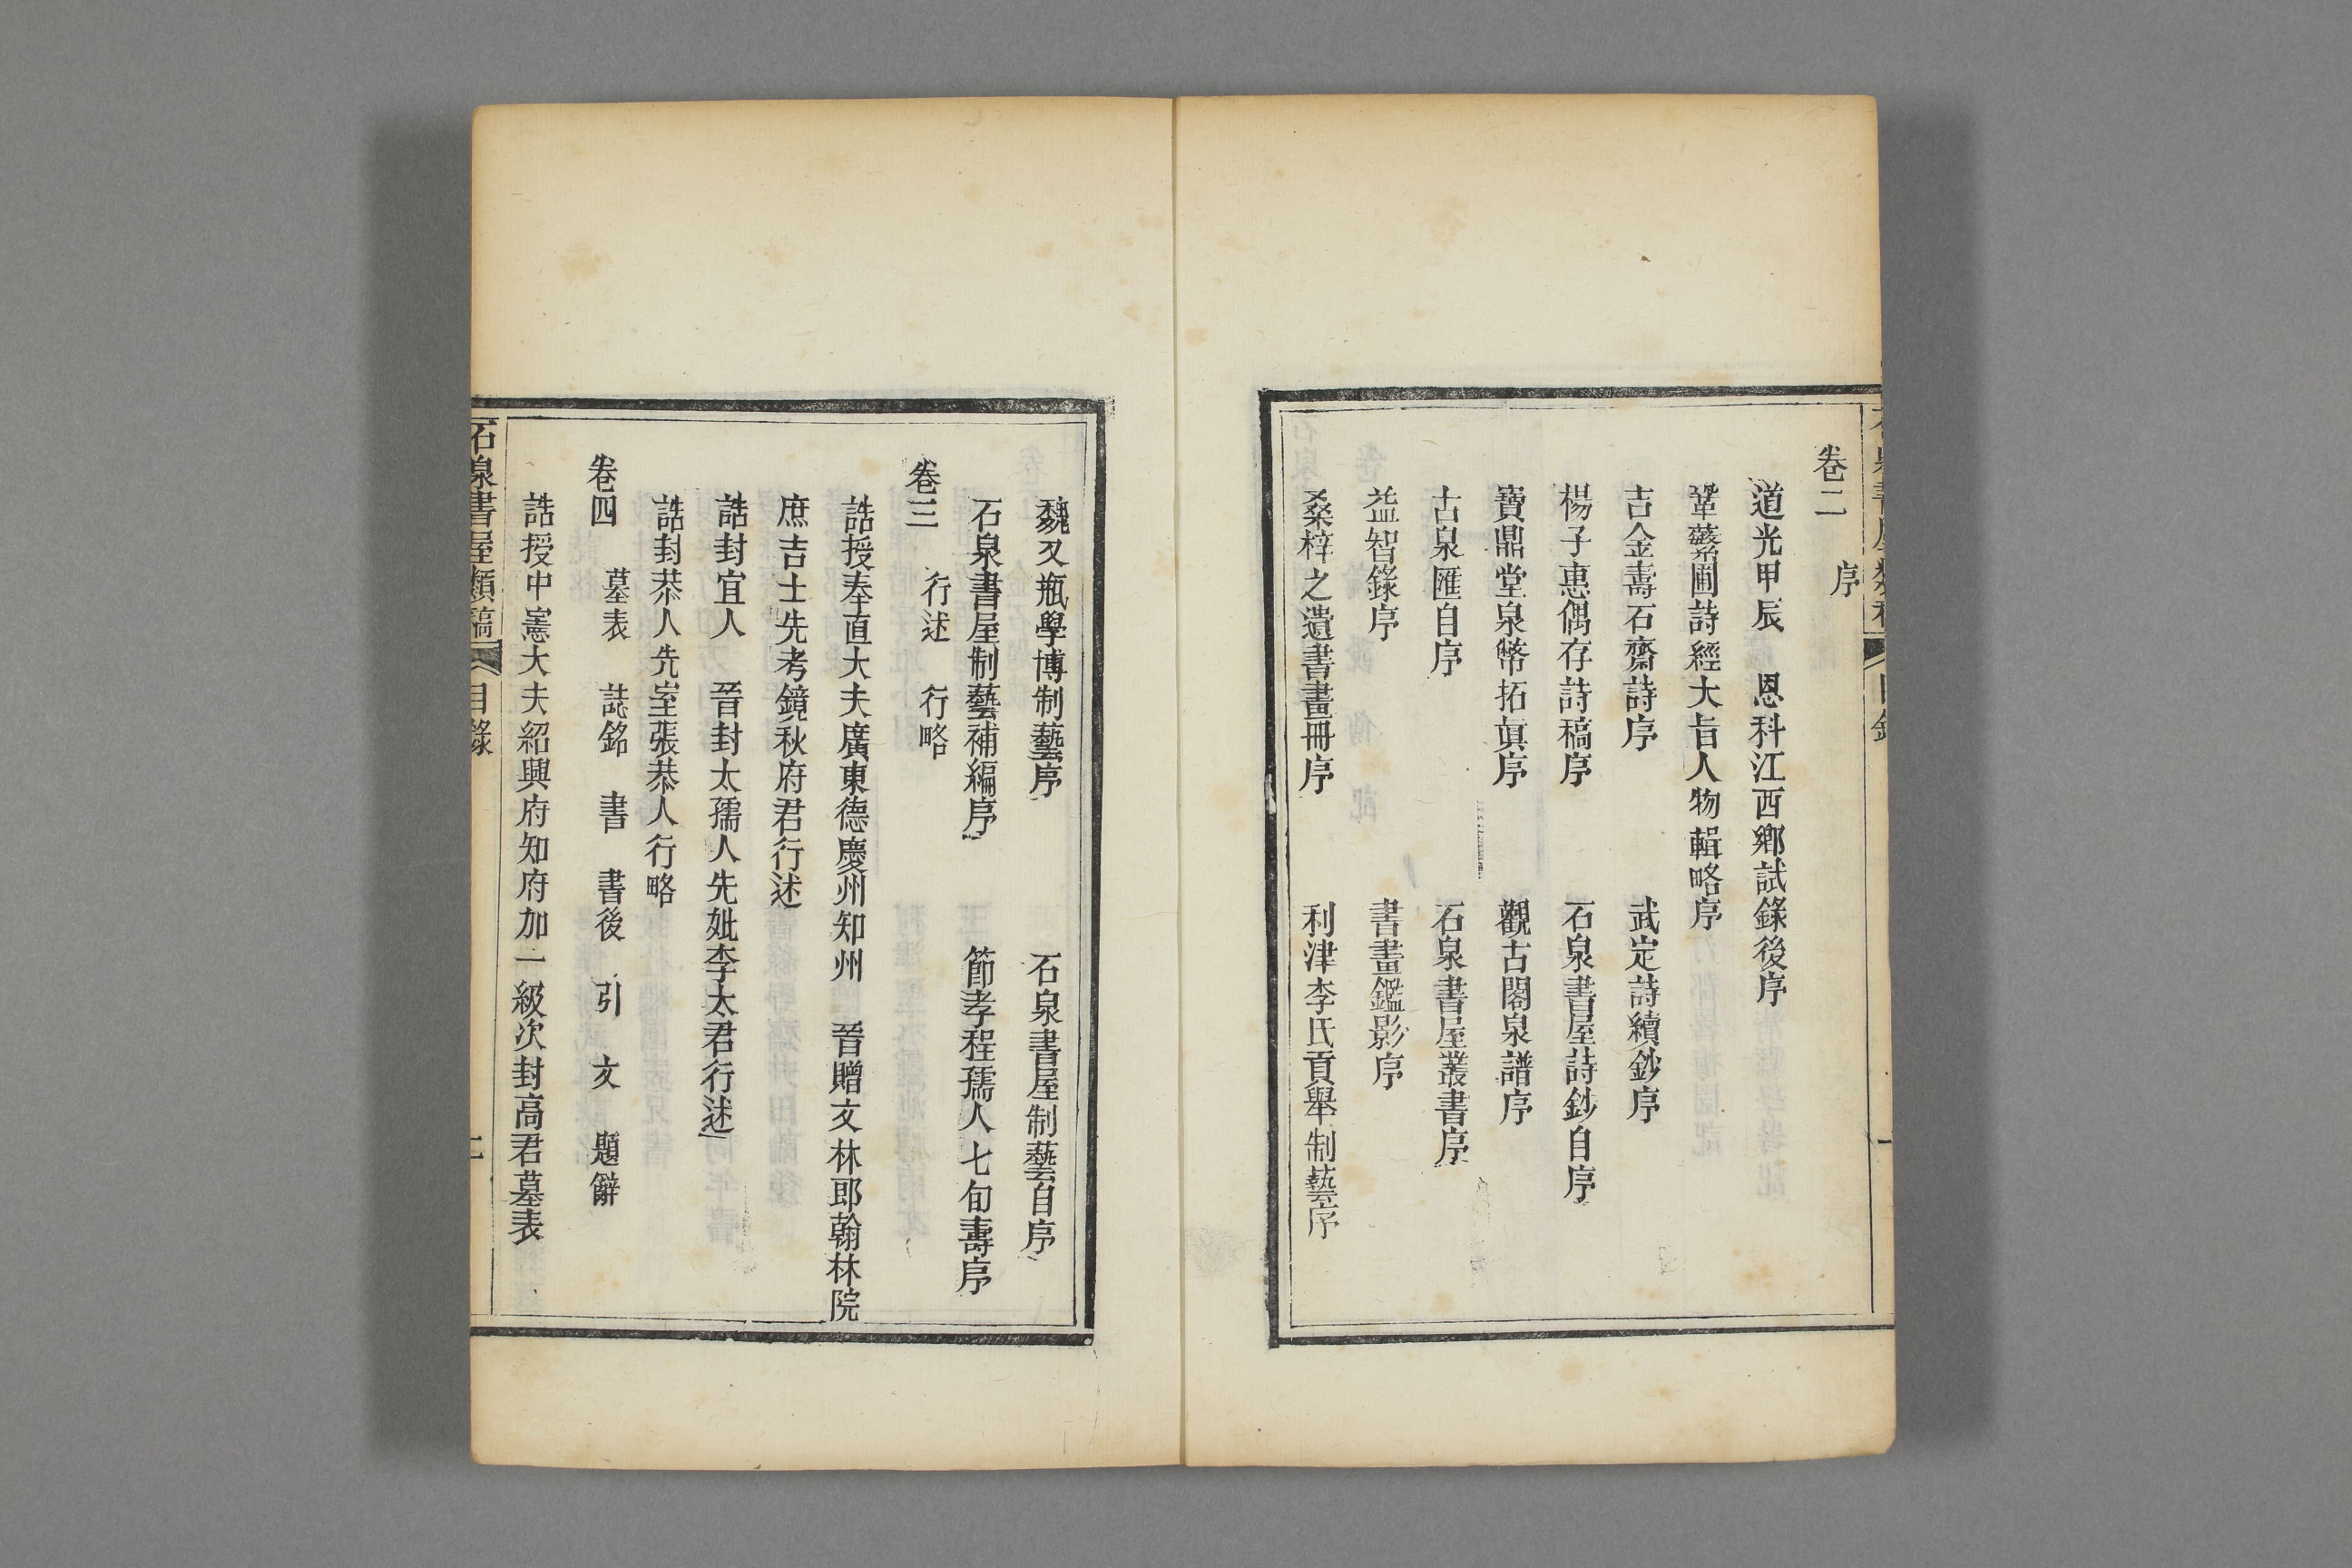 卷二　序
道光甲辰　恩科江西鄉試錄後序
鞏蘩圃詩經大旨人物輯略序
吉金壽石齋詩序　武定詩續鈔序
楊子惠偶存詩稿序　石泉書屋詩鈔自序
寶鼎堂泉幣拓眞序　觀古閣泉譜序
古泉匯自序　石泉書屋叢書序
益智錄序　書畫鑑影序
桑梓之遺書畫冊序　利津李氏貢舉制藝序
魏又瓶學博制藝序　石泉書屋制藝自序
石泉書屋制藝補編序　節孝程孺人七旬壽序
卷三　行述　行略
誥授奉直大夫廣東德慶州知州　晉贈文林郎翰林院
庶吉士先考鏡秋府君行述
誥封宜人　晉封太孺人先妣李太君行述
誥封恭人先室張恭人行略
卷四　墓表　誌銘　書　書後　引　文　題辭
誥授中憲大夫紹興府知府加二級次封高君墓表
石泉書屋類稿　目錄　二